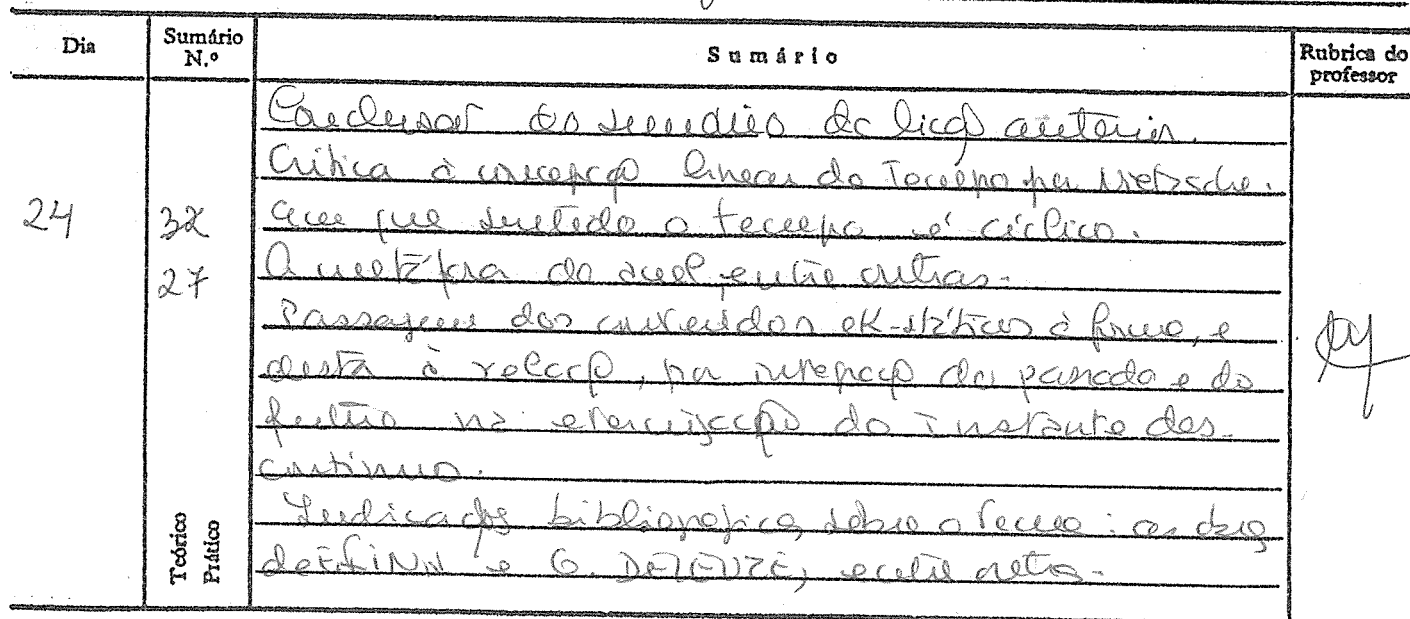 Dia
Sumário N.º
Sumário
Rubrica do professor
24
32
27
Teórico
Prático
Conclusão do sumário da lição anterior.
Crítica à concepção linear do Tempo por Nietzsche.
que sobretudo o tempo é cíclico.
A metáfora do anel entre outras.
Passagem dos conteúdos ek-státicos à forma, e
desta à relação, por integração do passado e do
futuro na eternização do Instante des-
contínuo.
Indicações bibliográficas sobre o tema: as
de E. FINK e G. DELEUZE, entre outros.